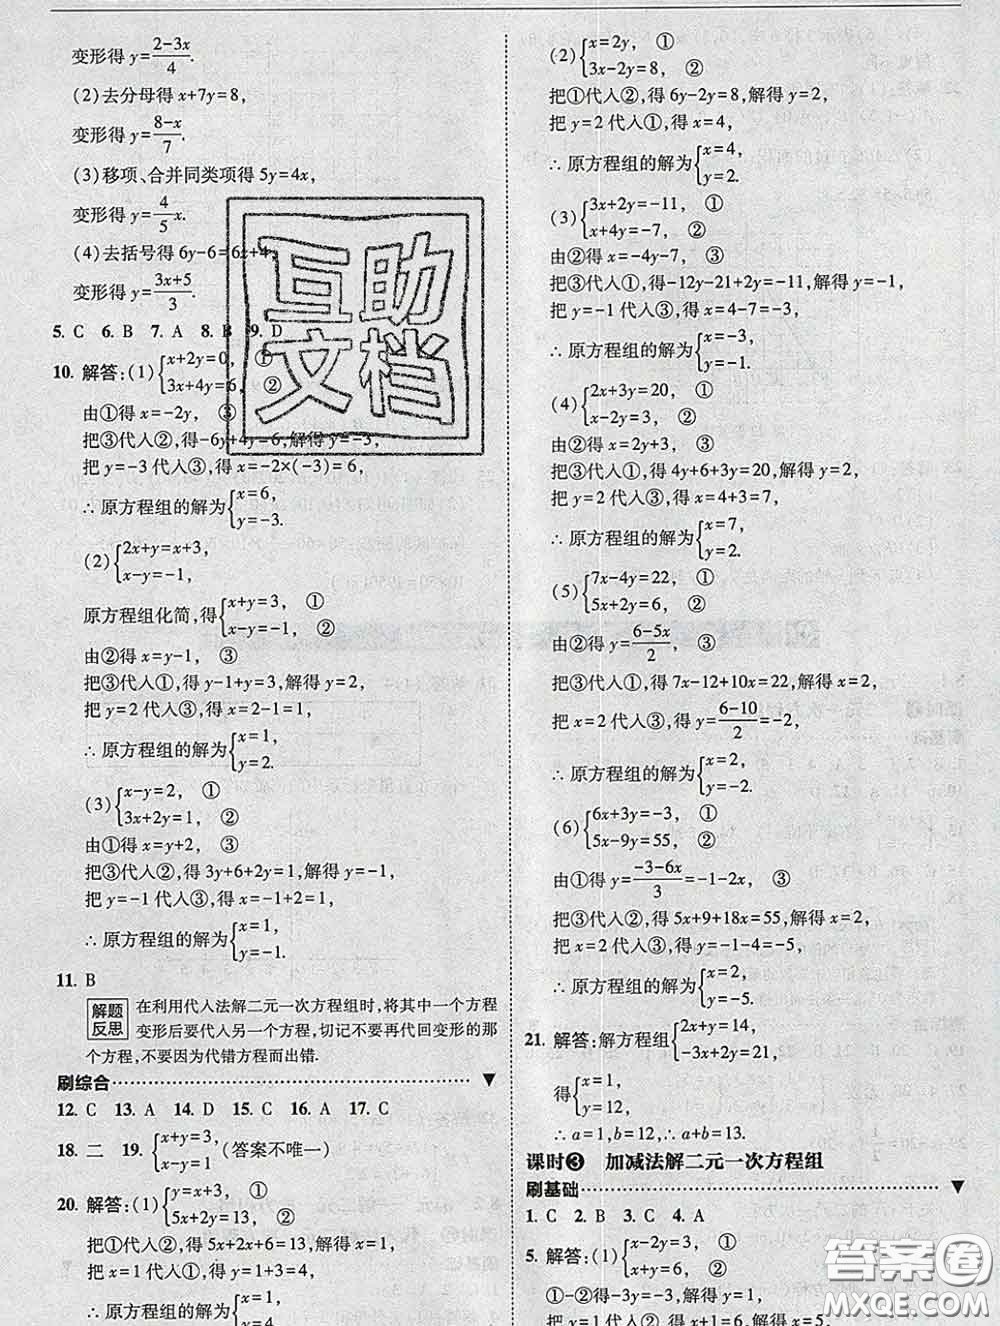 变形得 y=(2-3x)/4.
(2)去分母得 x+7y=8,
变形得 y=(8-x)/7.
(3)移项、合并同类项得 5y=4x,
变形得 y=4/5 x.
(4)去括号得 6y-6=6x+4,
变形得 y=(3x+5)/3.
5. C 6. B 7. A 8. B 9. D
10. 解答:(1){x+2y=0, ①
3x+4y=6, ②
由①得 x=-2y, ③
把③代入②,得-6y+4y=6,解得 y=-3,
把 y=-3 代入③,得 x=-2×(-3)=6,
∴ 原方程组的解为{x=6,
y=-3.
(2){2x+y=x+3,
x-y=-1,
原方程组化简,得{x+y=3, ①
x-y=-1, ②
由②得 x=y-1, ③
把③代入①,得 y-1+y=3,解得 y=2,
把 y=2 代入③,得 x=2-1=1,
∴ 原方程组的解为{x=1,
y=2.
(3){x-y=2, ①
3x+2y=1, ②
由①得 x=y+2, ③
把③代入②,得 3y+6+2y=1,解得 y=-1,
把 y=-1 代入③,得 x=-1+2=1,
∴ 原方程组的解为{x=1,
y=-1.
11. B
解题反思 在利用代入法解二元一次方程组时,将其中一个方程
变形后要代入另一个方程,切记不要再代回变形的那
个方程,不要因为代错方程而出错.
刷综合
12. C 13. A 14. D 15. C 16. A 17. C
18. 二 19. {x+y=3,
x-y=1 (答案不唯一)
20. 解答:(1){y=x+3, ①
5x+2y=13, ②
把①代入②,得 5x+2x+6=13,解得 x=1,
把 x=1 代入①,得 y=1+3=4,
∴ 原方程组的解为{x=1,
y=4.
(2){x=2y, ①
3x-2y=8, ②
把①代入②,得 6y-2y=8,解得 y=2,
把 y=2 代入①,得 x=4,
∴ 原方程组的解为{x=4,
y=2.
(3){3x+2y=-11, ①
x+4y=-7, ②
由②得 x=-4y-7, ③
把③代入①,得-12y-21+2y=-11,解得 y=-1,
把 y=-1 代入③,得 x=4-7=-3,
∴ 原方程组的解为{x=-3,
y=-1.
(4){2x+3y=20, ①
x-2y=3, ②
由②得 x=2y+3, ③
把③代入①,得 4y+6+3y=20,解得 y=2,
把 y=2 代入③,得 x=4+3=7,
∴ 原方程组的解为{x=7,
y=2.
(5){7x-4y=22, ①
5x+2y=6, ②
由②得 y=(6-5x)/2, ③
把③代入①,得 7x-12+10x=22,解得 x=2,
把 x=2 代入③,得 y=(6-10)/2=-2,
∴ 原方程组的解为{x=2,
y=-2.
(6){6x+3y=-3, ①
5x-9y=55, ②
由①得 y=(-3-6x)/3=-1-2x, ③
把③代入②,得 5x+9+18x=55,解得 x=2,
把 x=2 代入③,得 y=-1-4=-5,
∴ 原方程组的解为{x=2,
y=-5.
21. 解答:解方程组{2x+y=14,
-3x+2y=21,
得{x=1,
y=12,
∴ a=1,b=12,∴ a+b=13.
课时❸ 加减法解二元一次方程组
刷基础
1. C 2. B 3. C 4. A
5. 解答:(1){x-2y=3, ①
x+y=6, ②
①-②得-3y=-3,解得 y=1,
把 y=1 代入②,得 x=5,
互助
文档
答案圈
MXQE.COM